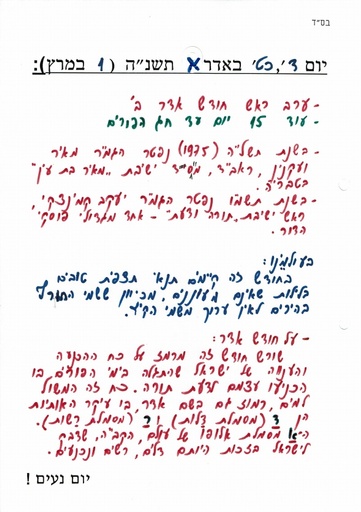 בס״ד
יום ד׳, כט׳ באדר א תשנ״ה (1 במרץ):
- ערב ראש חודש אדר ב׳
- עוד 15 יום עד חג הפורים
- בשנת תשל״ה (1975) נפטר הגמ״ר מאיר
ועקנין, ראב״ד, ישיבת "מאיר בת עין"
בטבריה.
- בשנת תשמ״ו נפטר הגמ״ר יעקב קמינצקי,
ראש ישיבת "תורה ודעת" - אחד מגדולי פוסקי
הדור.
בעולמנו:
בחודש זה קיימים תנאי תצפית טובים
בלילות שאינם מעוננים, מכיוון ששמי החורף
בהירים לאין ערוך משמי הקיץ.
- על חודש אדר:
שורש חודש זה מרמז על כח ההכנעה
והענווה של ישראל שהתגלה בימי הפורים בו
הכניעו עצמם לדעת תורה. כח זה המשול
למים, רמוז גם בשם אדר, בו עיקר האותיות
הן ד (מסמלת דלות) ו ר (מסמלת רשות).
ה-א מסמלת אלופו של עולם, הקב״ה, שדבק
לישראל בזכות היותם דלים, רשים ונכנעים.
יום נעים !